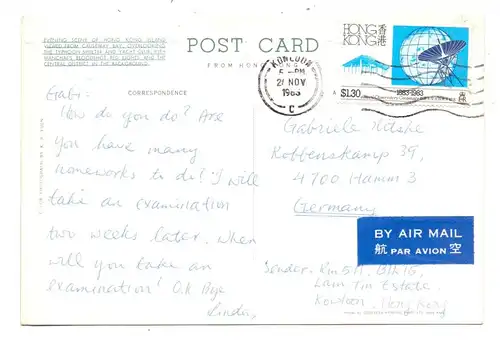 EVENING SCENE OF HONG KONG ISLAND
VIEWED FROM CAUSEWAY BAY, OVERLOOKING
THE TYPHOON SHELTER AND YACHT CLUB, WITH
WANCHAI'S BLOODSHOT RED LIGHTS AND THE
CENTRAL DISTRICT IN THE BACKGROUND.
POST CARD
FROM HONG KONG
CORRESPONDENCE
Gabi:
How do you do? Are
you have many
homeworks to do? I will
take an examination
two weeks later. When
will you take an
examination? O.K Bye
Linda,
HONG
KONG
香港
$1.30
1883-1983
KOWLOON
PM
NOV
1983
C
Gabriele
Kobbenskamp 39,
4700 Hamm 3
Germany
BY AIR MAIL
航 PAR AVION 空
Sender: Rm 511, Blk 16,
Lam Tin Estate,
Kowloon, Hong Kong